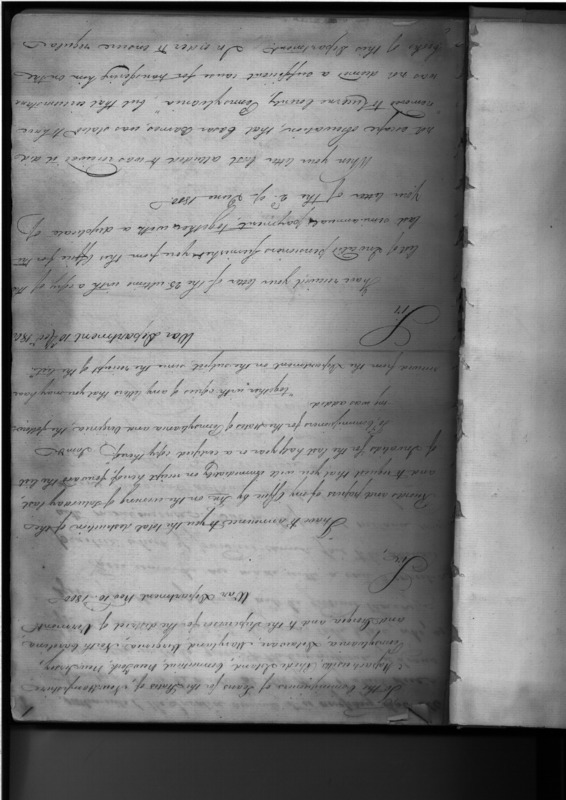 To the Commissioners of Loans for the States of New Hampshire
Massachusetts, Rhode Island, Connecticut, New York, New Jersey,
Pennsylvania, Delaware, Maryland, Virginia, North Carolina,
and Georgia and to the Supervisor for the district of Vermont
War Department Nov 10. 1800
Sir,
I have to announce to you the total destruction of the
Records and papers of my Office by fire on the evening of Saturday last,
and to request that you will immediately on receipt hereof forward the list
of Invalids for the last half year or a certified copy thereof. I am &
To Commissioners for the States of Pennsylvania and Virginia, the follow-
ing was added.
"together, with copies of any letters that you may have
received from the Department on the subject since the receipt of the list"
War Department 10 Decr 180
Sir
I have received your letter of the 25 ultimo with a copy of the
list of Invalid pensioners furnished you from this Office for the
last semi-annual payment, together with a duplicate of
your letter of the 2. of June 1800
When your letter last attended to was received it did
not escape observation, that was stated to have
removed to Luzerne County, Pennsylvania but that circumstance
was not deemed a sufficient cause for transferring him on the
books of this Department. In order to ensure regula